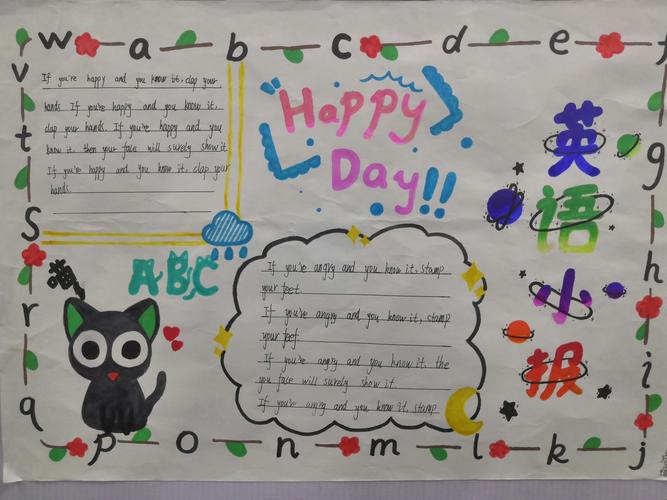 w a b c d e f
g h i j
k l m n o p
q r s t v
If you're happy and you know it, clap your
hands. If you're happy and you know it,
clap your hands. If you're happy and you
know it, then your face will surely show it.
If you're happy and you know it, clap your
hands.
Happy
Day!!
ABC
If you're angry and you know it, stamp
your feet.
If you're angry and you know it, stamp
your feet.
If you're angry and you know it, the
you face will surely show it
If you're angry and you know it, stamp
英
语
小
报